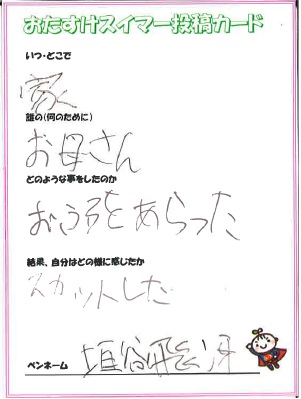 おたすけスイマー投稿カード
いつ・どこで
家
誰の(何のために)
お母さん
どのような事をしたのか
おふろをあらった
結果、自分はどの様に感じたか
スカットした
ペンネーム 垣谷飛冴